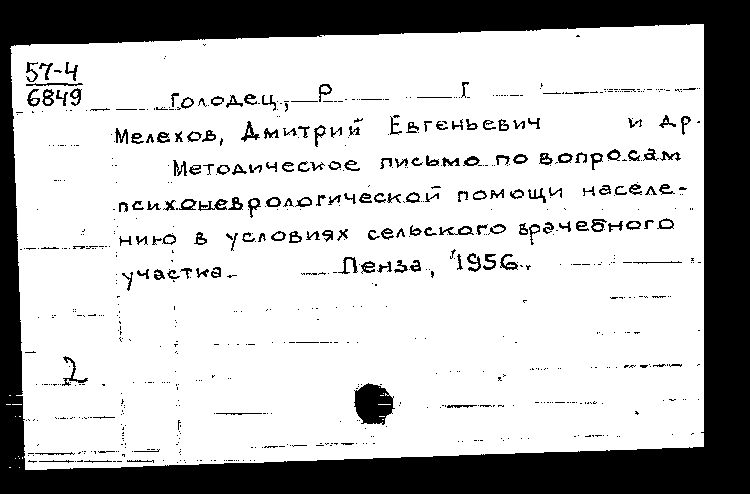 57-4
6849
Голодец, Р Г
Мелехов, Дмитрий Евгеньевич и др.
Методическое письмо по вопросам
психоневрологической помощи населе-
нию в условиях сельского врачебного
участка. Пенза, 1956.
2